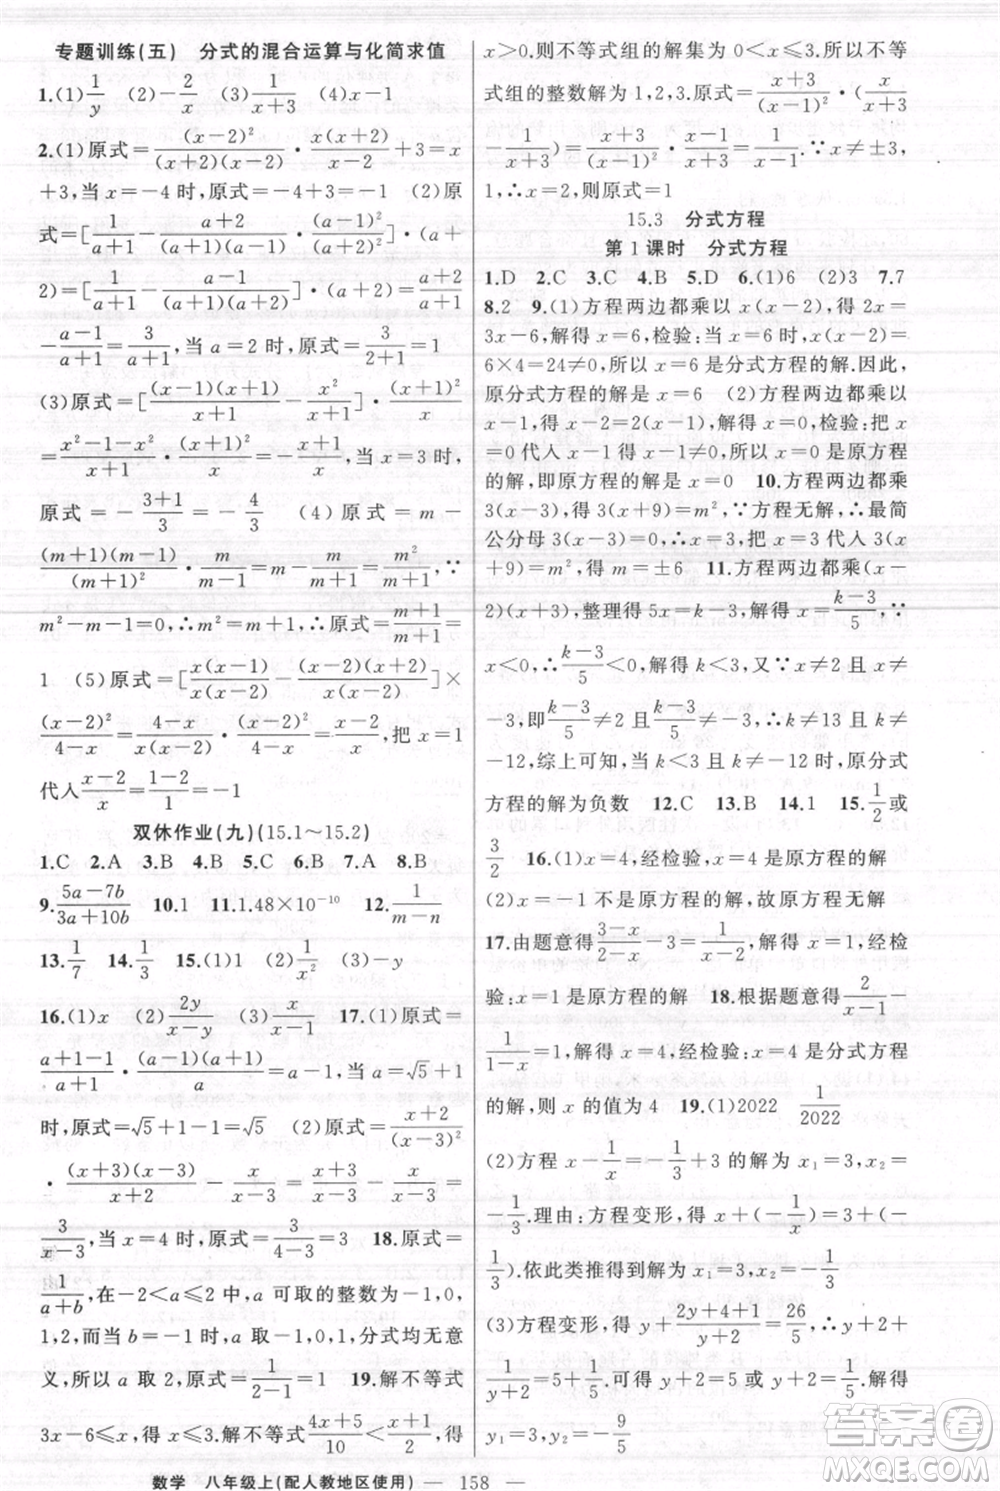 专题训练(五)　分式的混合运算与化简求值
1.(1)1/y　(2)-2/x　(3)1/(x+3)　(4)x-1
2.(1)原式=(x-2)²/((x+2)(x-2))·x(x+2)/(x(x-2))+3=x
+3,当x=-4时,原式=-4+3=-1　(2)原
式=[1/(a+1)-(a+2)/((a+1)(a-1))·(a-1)²/(a+2)]·(a+
2)=[1/(a+1)-(a-1)/(a+1)]·(a+2)=
-(a-1)/(a+1)=3/(a+1),当a=2时,原式=3/(2+1)=1
(3)原式=[(x-1)(x+1)/(x+1)-1/(x+1)]·(x+1)/x=
(x²-1-x²)/(x+1)·(x+1)/x=-1/x,当x=3时,
原式=-(3+1)/3=-4/3　(4)原式=m-
(m+1)(m-1)/(m+1)²·m/(m-1)=m-m/(m+1)=m²/(m+1),∵
m²-m-1=0,∴m²=m+1,∴原式=(m+1)/(m+1)=
1　(5)原式=[x(x-1)/(x(x-2)²)-(x-2)(x+2)/(x(x-2)²)]×
(x-2)²/(4-x)=(4-x)/(x(x-2)²)·(x-2)²/(4-x)=1/x,把x=1
代入(x-2)/x=(1-2)/1=-1
双休作业(九)(15.1～15.2)
1.C　2.A　3.B　4.B　5.C　6.B　7.A　8.B
9.(5a-7b)/(3a+10b)　10.1　11.1.48×10⁻¹⁰　12.1/(m-n)
13.1/7　14.1/3　15.(1)1　(2)1/x²　(3)-y
16.(1)x　(2)2y/(x-y)　(3)a/(a+1)　17.(1)原式=
(a+1-1)/(a+1)·(a-1)(a+1)/a=a-1,当a=√5+1
时,原式=√5+1-1=√5　(2)原式=(x+2)/(x-3)²
·(x+3)(x-3)/(x+2)-x/(x-3)=(x+3)/(x-3)-x/(x-3)=
3/(x-3),当x=4时,原式=3/(4-3)=3　18.原式=
1/(a+b),在-2<a≤2中,a可取的整数为-1,0,
1,2,而当b=-1时,a取-1,0,1,分式均无意
义,所以a取2,原式=1/(2-1)=1　19.解不等式
3x-6≤x,得x≤3,解不等式(4x+5)/10<(x+1)/2,得
x>0,则不等式组的解集为0<x≤3,所以不等
式组的整数解为1,2,3.原式=(x+3)/(x-1)²·(x/(x+3)
-1/(x+3))=(x+3)/(x-1)²·(x-1)/(x+3)=1/(x-1).∵x≠±3,
1,∴x=2,则原式=1
15.3　分式方程
第1课时　分式方程
1.D　2.C　3.C　4.B　5.D　6.(1)6　(2)3　7.7
8.2　9.(1)方程两边都乘以x(x-2),得2x=
3x-6,解得x=6,检验:当x=6时,x(x-2)=
6×4=24≠0,所以x=6是分式方程的解.因此,
原分式方程的解是x=6　(2)方程两边都乘以
x-1,得x-2=2(x-1),解得x=0,检验:把x=
0代入x-1,得-1≠0,所以x=0是原方程
的解,即原方程的解是x=0　10.方程两边都乘
3(x-3),得3(x+9)=m²,∵方程无解,∴最简
公分母3(x-3)=0,∴x=3,把x=3代入3(x
+9)=m²,解得m=±6　11.方程两边都乘(x-
2)(x+3),整理得5x=k-3,解得x=(k-3)/5,∵
x<0,∴(k-3)/5<0,解得k<3,又∵x≠2且x≠
-3,即(k-3)/5≠2,(k-3)/5≠-3,∴k≠13且k≠
-12,综上可知,当k<3且k≠-12时,原分式
方程的解为负数　12.C　13.B　14.1　15.1/2或
3/2　16.(1)x=4,经检验,x=4是原方程的解
(2)x=-1不是原方程的解,故原方程无解
17.由题意得(3-x)/(2-x)-3=1/(x-2),解得x=1,经检
验:x=1是原方程的解　18.根据题意得2/(x-1)-
1/(x-1)=1/3,解得x=4,经检验:x=4是分式方程
的解,则x的值为4　19.(1)2022　1/2022
(2)方程x-1/x=-1/3+3的解为x₁=3,x₂=
-1/3.理由:方程变形,得x+(-1/x)=3+(-
1/3).依此类推得到解为x₁=3,x₂=-1/3
(3)方程变形,得(2y+4+1)/(y+2)+y=26/5,∴y+2+
1/(y+2)=5+1/5.可得y+2=5或y+2=1/5,解得
y₁=3,y₂=-9/5
数学　八年级上(配人教地区使用)　— 158 —
答案圈